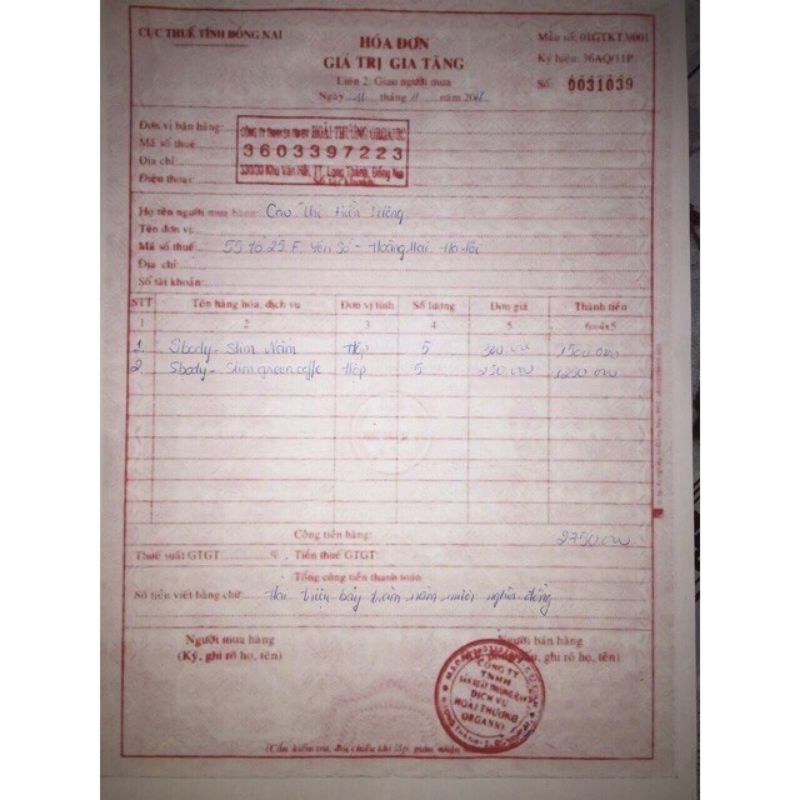 CỤC THUẾ TỈNH ĐỒNG NAI
HÓA ĐƠN
GIÁ TRỊ GIA TĂNG
Liên 2: Giao người mua
Ngày 11 tháng 11 năm 2018
Mẫu số: 01GTKT3/001
Ký hiệu: 36AQ/11P
Số: 0031039
Đơn vị bán hàng: HOÀI THƯƠNG ORGANIC
Mã số thuế: 3603397223
Địa chỉ: Khu Văn Hải, TT. Long Thành, Đồng Nai
Điện thoại:
Họ tên người mua hàng: Cao Thị
Tên đơn vị:
Mã số thuế: 55 tổ 25 F. Yên Sở - Hoàng Mai. Hà Nội
Địa chỉ:
Số tài khoản:
STT Tên hàng hóa, dịch vụ Đơn vị tính Số lượng Đơn giá Thành tiền
1 2 3 4 5 6=4x5
1. Sbody - Slim Nấm Hộp 5 300 000 1500 000
2. Sbody - Slim green coffe Hộp 5 250 000 1250 000
Cộng tiền hàng: 2750 000
Thuế suất GTGT: Tiền thuế GTGT:
Tổng cộng tiền thanh toán
Số tiền viết bằng chữ: Hai triệu bảy trăm năm mươi nghìn đồng
Người mua hàng
(Ký, ghi rõ họ, tên)
Người bán hàng
ghi rõ họ, tên)
CÔNG TY
TNHH
DỊCH VỤ
HOÀI THƯƠNG
ORGANIC
(Cần kiểm tra, đối chiếu khi lập, giao, nhận